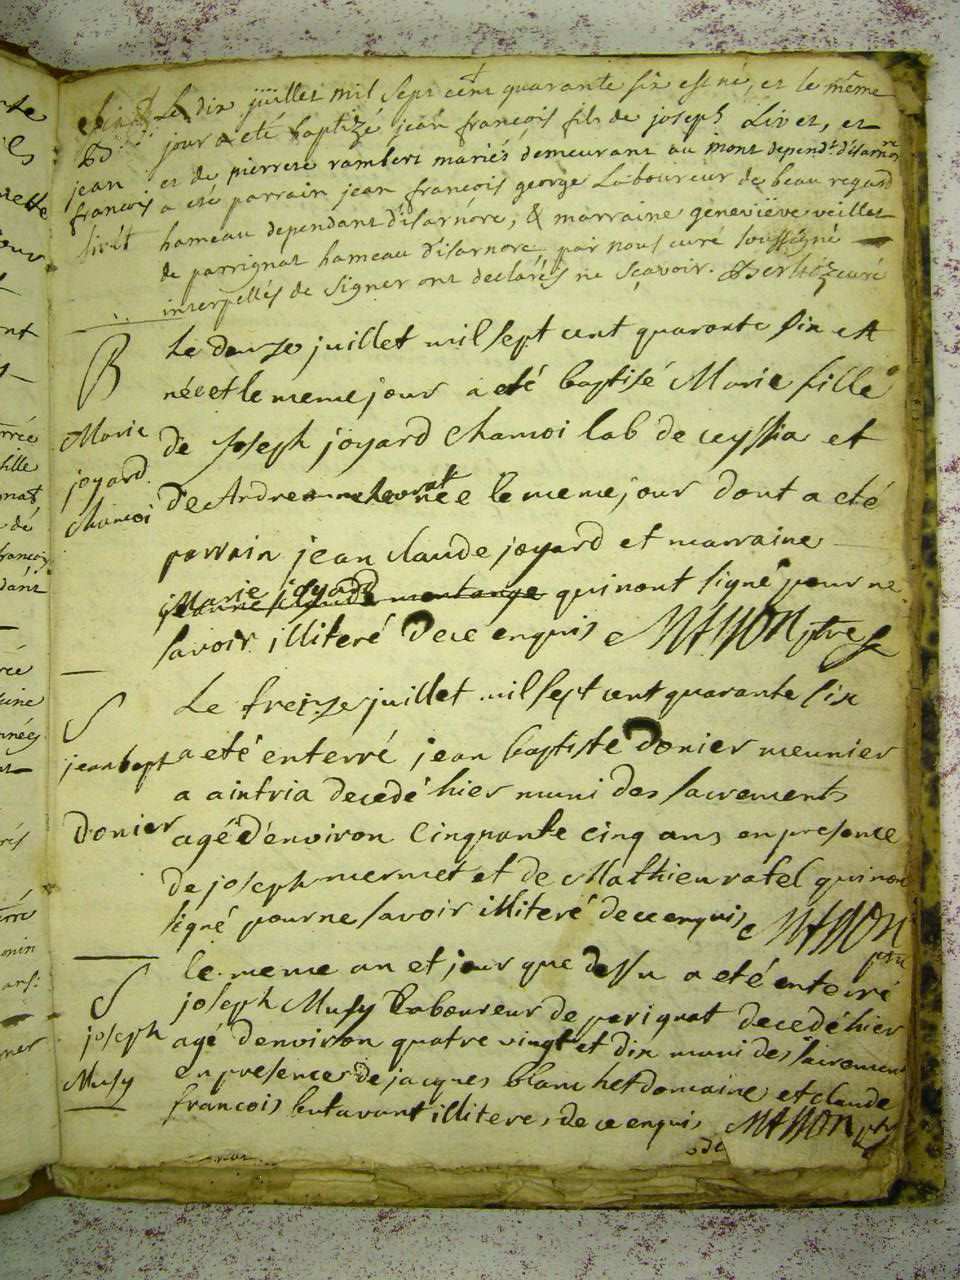 Le dix juillet mil sept cent quarante six est né, et le même
Bd jour a eté baptizé jean françois fils de joseph Livet, et
jean et de pierrete rambert mariés demeurant au mont dependt d'isarnore
francois a eté parrain jean françois george Laboureur de beau regard
livet hameau dependant d'isarnore, & marraine geneviève veillet
de parrignat hameau d'isarnore par nous curé soussigné
interpellés de signer ont declarés ne sçavoir. Berlioz curé
B Le douze juillet mil sept cent quarante six est
née et le meme jour a eté baptisé Marie fille
Marie de Joseph joyard chamoi lab de ceyssia et
joyard chamoi
d'Andrea chevrat née le meme jour dont a eté
parrain jean claude joyard et marraine
Marie joyard
qui nont signé pour ne
savoir illiteré de ce enquis Masson ptre
S Le treize juillet mil sept cent quarante six
jean bapt a eté enterré jean baptiste Donier meunier
a aintria decedé hier muni des sacrements
Donier agé d'environ cinquante cinq ans en presence
de joseph mermet et de Mathieu ratel qui nont
signé pour ne savoir illiteré de ce enquis Masson
ptre
le meme an et jour que dessu a eté enterré
S joseph Musy Laboureur de perignat decedé hier
joseph agé denviron quatre vingt et dix muni des sacrement
Musy en presence de jacques blanchet domaine et claude
francois butavant illitere, de ce enquis Masson ptr